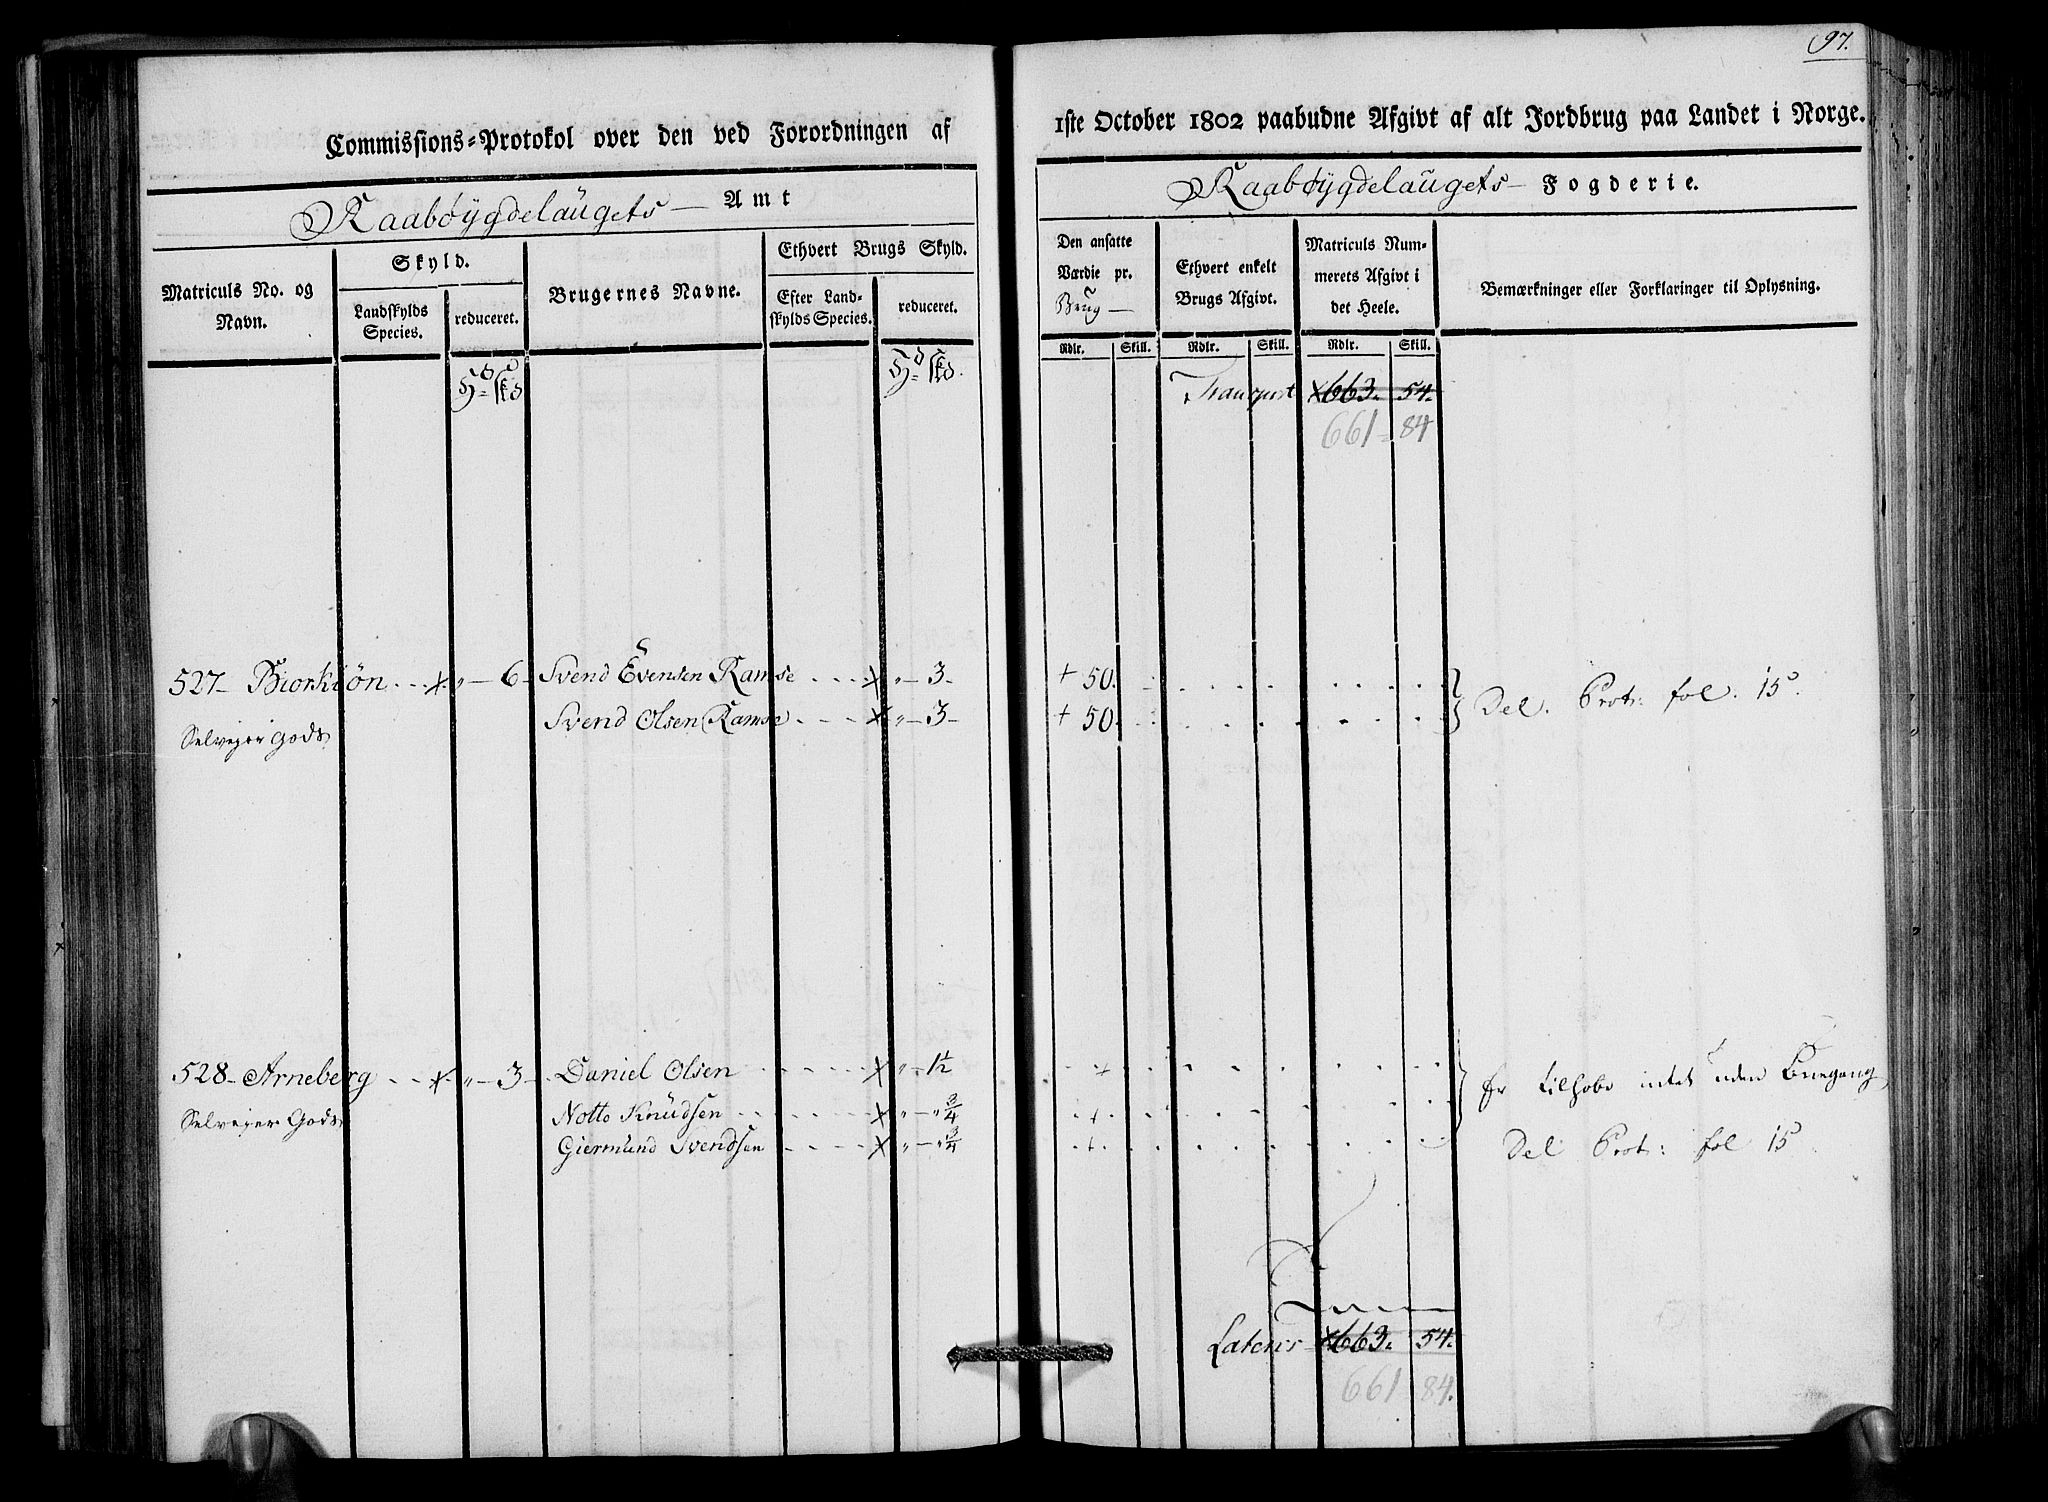 97.
Commissions-Protokol over den ved Forordningen af
1ste October 1802 paabudne Afgivt af alt Jordbrug paa Landet i Norge.
Raabøygdelaugets — Amt
Raabøygdelaugets — Fogderie.
Matriculs No. og Navn.
Skyld.
Landskylds Species.
reduceret.
Brugernes Navne.
Ethvert Brugs Skyld.
Efter Landskylds Species.
reduceret.
Den ansatte Værdie pr. Brug —
Ethvert enkelt Brugs Afgivt.
Matriculs Nummerets Afgivt i det Heele.
Bemærkninger eller Forklaringer til Oplysning.
Rdlr. Skill. Rdlr. Skill. Rdlr. Skill.
Transport 663. 54.
661 = 84
527 — Biorkiøn . . . x „ — 6 — Svend Evensen Ramse . . . . x „ — 3 — + 50.
Svend Olsen Ramse . . . . x „ — 3 — + 50. Del. Prot: fol. 15.
Selveyer Gods
528 — Arneberg . . . x „ — 3 — Daniel Olsen . . . . x „ — 1½ + Er tilhobe intet uden Buegang
Selveyer Gods Notto Knudsen . . . . x „ — „ ¾ +
Giermund Svendsen . . . . x „ — „ ¾ + Del Prot: fol 15
Lateris 663. 54.
661 84.